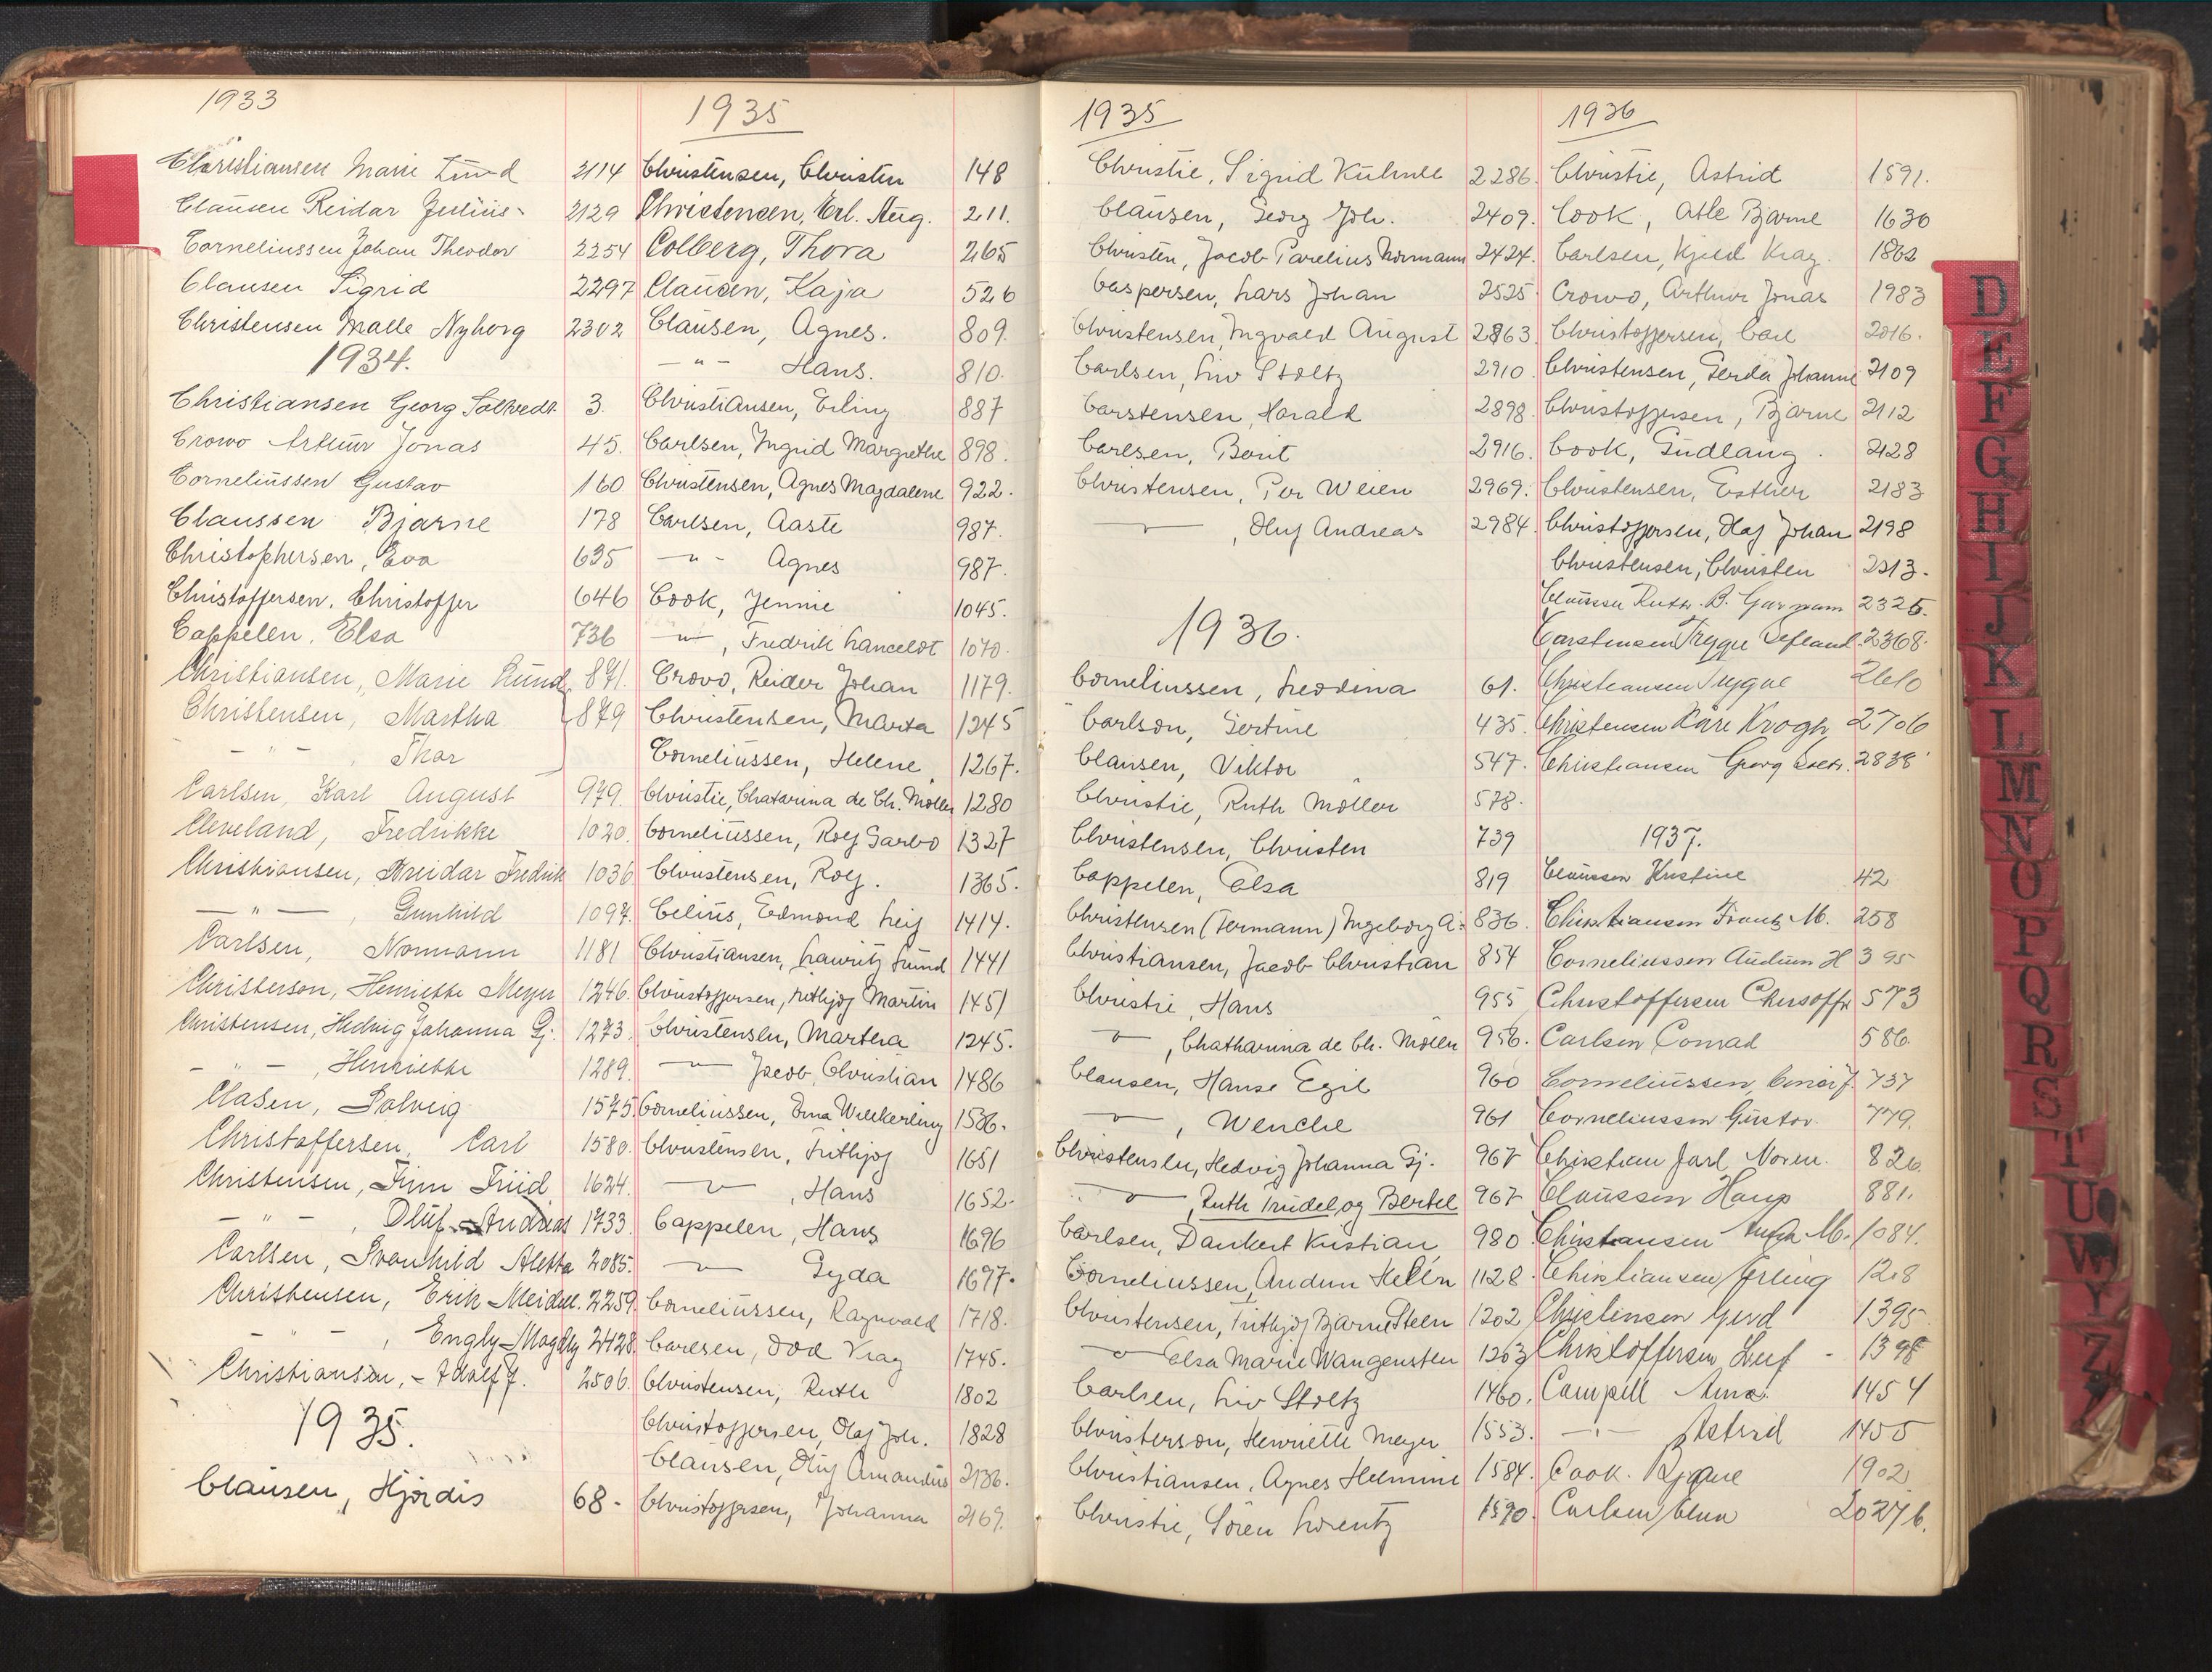 1933
Christiansen Marie Lund 2114
Clausen Reidar Julius 2129
Corneliussen Johan Theodor 2254
Clausen Sigrid 2297
Christensen Malle Nyborg 2302
1934.
Christiansen Georg Soltvedt 3.
Crowo Arthur Jonas 45.
Corneliussen Gustav 160
Claussen Bjarne 178
Christophersen, Eva 635
Christoffersen, Christoffer 646
Cappelen, Elsa 736
Christiansen, Marie Lund, 871.
Christensen, Martha 879
- " - , Thor
Carlsen, Karl August 979.
Cleveland, Fredrikke 1020.
Christiansen, Kreidar Fredrik 1036
- " - , Gunhild 1097.
Carlsen, Normann 1181
Christerson, Henriette Meyer 1246.
Christensen, Hedvig Johanna Gj. 1273.
- " - , Henriette 1289.
Clasen, Solveig 1575.
Christoffersen, Carl 1580.
Christensen, Finn Friid 1624.
- " - , Oluf Andreas 1733.
Carlsen, Svanhild Aletta 2085.
Christensen, Erik Meidell. 2259.
- " - , Engly Magdly 2428.
Christiansen, - Adolf J. 2506.
1935.
Clausen, Hjørdis 68 -
1935
Christensen, Christen 148
Christensen, Erl. Aug. 211.
Colberg, Thora 265
Clausen, Kaja 526
Clausen, Agnes. 809.
- " - Hans. 810.
Christiansen, Erling 887
Carlsen, Ingrid Margrethe 898.
Christensen, Agnes Magdalene 922.
Carlsen, Aaste 987.
- " - Agnes 987.
Cook, Jennie 1045.
- " - , Fredrik Lanceldt 1070.
Crovo, Reider Johan 1179.
Christensen, Marta 1245
Corneliussen, Helene, 1267.
Christie, Chatarina de Ch. Møller 1280
Corneliussen, Rolf Garbo 1327
Christensen, Rolf. 1365.
Celius, Edmond Leif 1414.
Christiansen, Lauritz Lund 1441
Christoffersen, Frithjof Martin 1451
Christensen, Martha 1245.
- " - Jacob Christian 1486
Corneliussen, Erna Weckerling 1586.
Christensen, Frithjof 1651
- " - , Hans 1652.
Cappelen, Hans 1696
- " - Gyda 1697.
Corneliussen, Ragnvald 1718.
Carlsen, Odd Krag 1745.
Christensen, Ruth 1802
Christoffersen, Olaf Joh. 1828
Clausen, Oluf Amandus 2136.
Christoffersen, Johanna 2169.
1935
Christie, Sigrid Kühnle 2286.
Clausen, Georg Joh. 2409.
Christen, Jacob Parelius Normann 2424.
Caspersen, Lars Johan 2525
Christensen, Ingvald August 2863.
Carlsen, Liv Stoltz 2910
Carstensen, Harald 2898.
Carlsen, Berit 2916.
Christensen, Per Weien 2969.
- " - , Oluf Andreas 2984.
1936.
Corneliussen, Leodina 61.
Carlson, Gertine 435.
Clausen, Viktor 547.
Christie, Ruth Møller 578.
Christensen, Christen 739
Cappelen, Elsa 819
Christensen (Termann) Ingeborg A. 836.
Christiansen, Jacob Christian 854
Christie, Hans 955
- " - , Chatharina de Ch. Møller 956.
Clausen, Hans Egil 960
- " - , Wenche 961
Christensen, Hedvig Johanna Gj. 967
- " - , Ruth Trudel og Bertel 967
Carlsen, Dankert Kristian 980
Corneliussen, Audun Hellen 1128
Christensen, Frithjof Bjarne Steen 1202
- " - Elsa Marie Wangensten 1203
Carlsen, Liv Stoltz 1460.
Christerson, Henriette Meyer 1553.
Christiansen, Agnes Helmine 1584.
Christie, Sören Lorentz 1590.
1936
Christie, Astrid 1591.
Cook, Atle Bjarne 1630
Carlsen, Kjell Krag. 1862
Crowo, Arthur Jonas 1983
Christoffersen, Carl 2016.
Christensen, Gerda Johanne 2109
Christoffersen, Bjarne 2112
Cook, Gudlaug. 2128
Christensen, Esther 2183
Christoffersen, Olaf Johan 2198
Christensen, Christen 2213.
Claussen Ruth. B. Garmann 2325.
Carstensen Trygve Defland. 2368.
Christiansen Trygve 2610
Christensen Kåre Krogh 2706
Christiansen Georg Soltv. 2838
1937.
Claussen Kristine 42
Christiansen Frantz M. 258
Corneliussen Audun H 395
Christoffersen Chrisoffr 573
Carlsen Conrad 586.
Corneliussen, Einar J. 737
Corneliussen Gustav. 779.
Christian Jarl Noren. 826.
Claussen Hans 881.
Christiansen M. 1084.
Christiansen Erling 1218
Christensen Gerd 1395
Christoffersen Leif - 1398
Campell Anna. 1454
- " - Astrid 1455
Cook. Bjarne 1902
Carlsen Elna 2027 b.
D
E
F
G
H
I
J
K
L
M
N
O
P
Q
R
S
T
U
W
Y
Z